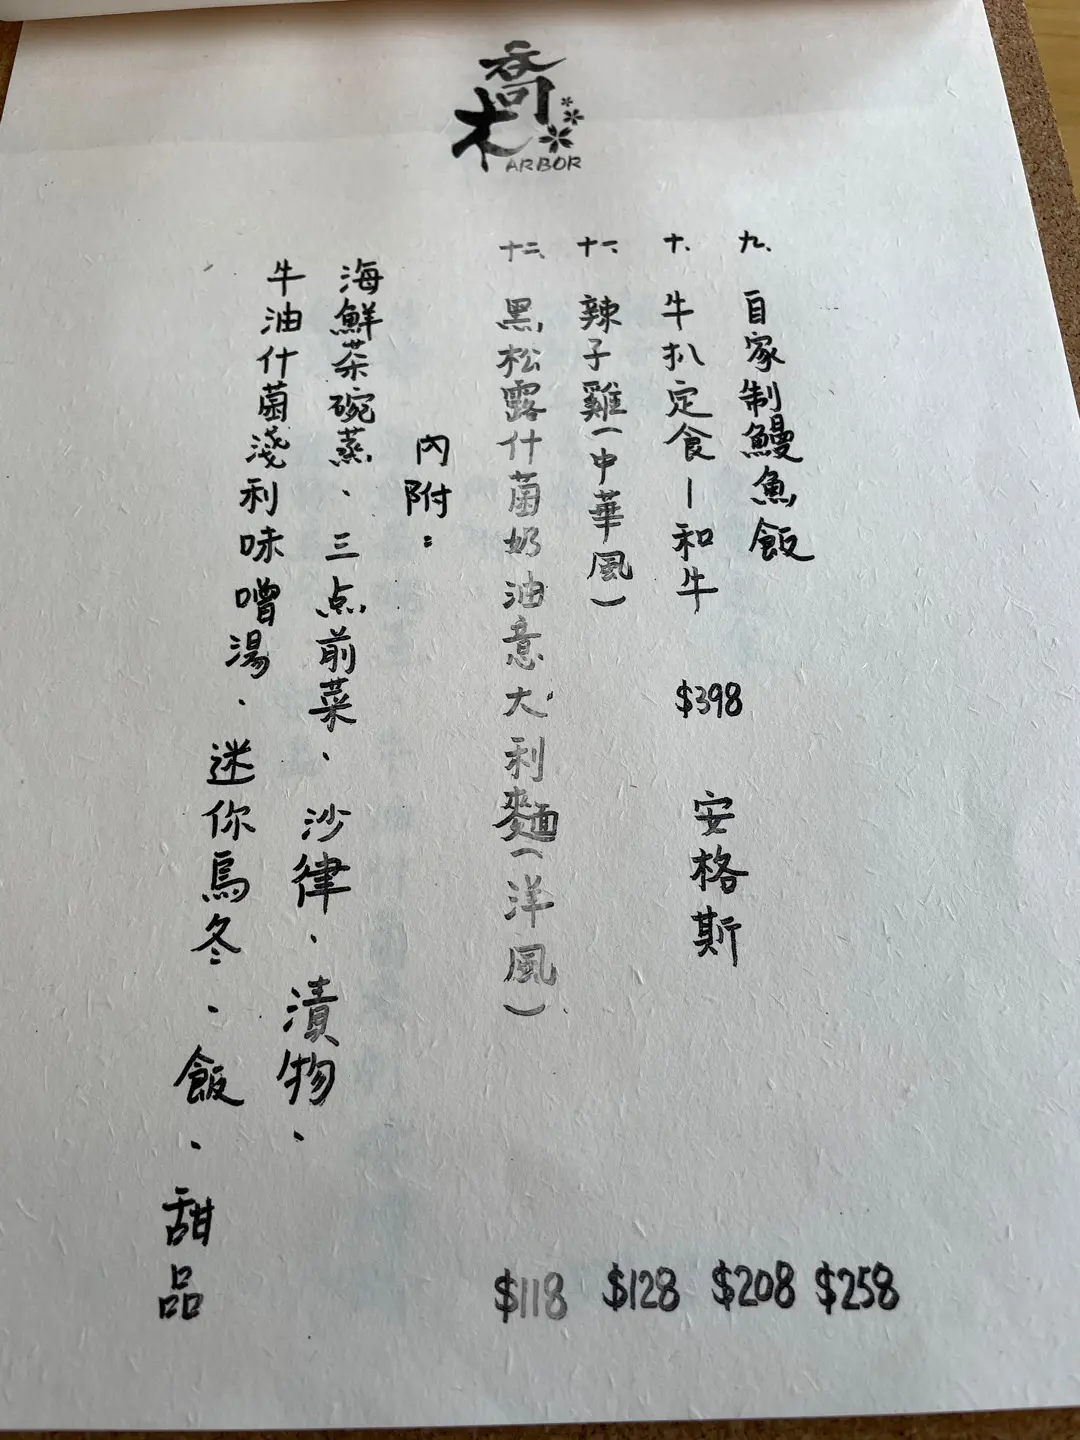 喬木
ARBOR
九、自家制鰻魚飯 $258
十、牛扒定食－和牛 $398 安格斯 $208
十一、辣子雞(中華風) $128
十二、黑松露什菌奶油意大利麵(洋風) $118
內附：
海鮮茶碗蒸、三点前菜、沙律、漬物、
牛油什菌淺利味噌湯、迷你烏冬、飯、甜品